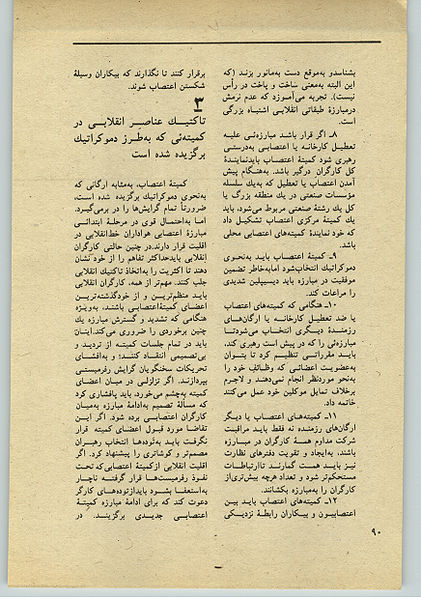 بشناسدو به‌موقع دست به‌مانور بزند (که
این البته به‌معنی ساخت و پاخت در رأس
نیست). تجربه می‌آموزد که عدم نرمش
درمبارزهٔ طبقاتی انقلابی اشتباه بزرگی
است.
۸ـ اگر قرار باشد مبارزه‌ئی علیه
تعطیل کارخانه یا اعتصابی به‌درستی
رهبری شود کمیتهٔ اعتصاب بایدنمایندهٔ
کل کارگران درگیر باشد. به‌هنگام پیش
آمدن اعتصاب یا تعطیل که به‌یك سلسله
مؤسسات صنعتی در یك منطقه بزرگ یا
کل یك رشتهٔ صنعتی مربوط می‌شود، باید
یك کمیتهٔ مرکزی اعتصاب تشکیل داد
که خود نمایندهٔ کمیته‌های اعتصابی محلی
باشد.
۹ـ کمیتهٔ اعتصاب باید به‌نحوی
دموکراتیك انتخاب‌شود امابه‌خاطر تضمین
موفقیت در مبارزه باید دیسیپلین شدیدی
را مراعات کند.
۱۰ـ هنگامی که کمیته‌های اعتصاب
یا ضد تعطیل کارخانه یا ارگان‌های
رزمندهٔ دیگری انتخاب می‌شودتا
مبارزه‌ئی را که در پیش است رهبری کند،
باید مقرراتی تنظیم کرد تا بتوان
به‌عضویت اعضائی که وظائف خود را
به‌نحو موردنظر انجام نمی‌دهند و لاجرم
برخلاف تمایل موکلین خود عمل می‌کنند
خاتمه داد.
۱۱ـ کمیته‌های اعتصاب یا دیگر
ارگان‌های رزمنده نه فقط باید مراقبت
شرکت مداوم همهٔ کارگران در مبارزه
باشند، به‌ایجاد و تقویت دفترهای نظارت
نیز باید همت گمارند تاارتباطات
مستحکم‌تر شود و تعداد هرچه بیش‌تری‌از
کارگران را به‌مبارزه بکشانند.
۱۲ـ کمیته‌های اعتصاب باید بین
اعتصابیون و بیکاران رابطهٔ نزدیکی
برقرار کنند تا نگذارند که بیکاران وسیلهٔ
شکستن اعتصاب شوند.
۳
تاکتیك عناصر انقلابی در
کمیته‌ئی که به‌طرز دموکراتیك
برگزیده شده است
کمیتهٔ اعتصاب، به‌مثابه ارگانی که
به‌نحوی دموکراتیك برگزیده شده است،
ضرورتاً تمام گرایش‌ها را در برمی‌گیرد.
اما به‌احتمال قوی در مرحلهٔ ابتدائی
مبارزهٔ اعتصابی هواداران خط‌انقلابی در
اقلیت قرار دارند.در چنین حالتی کارگران
انقلابی بایدحداکثر تفاهم را از خود نشان
دهند تا اکثریت را به‌اتخاذ تاکتیك انقلابی
جلب کنند. مهم‌تر از همه، کارگران انقلابی
باید منظم‌ترین و از خودگذشته‌ترین
اعضای کمیتهٔ‌اعتصابی باشند، به‌ویژه
هنگامی که تشدید و گسترش مبارزه یك
چنین برخوردی را ضروری می‌کند.اینان
باید در تمام جلسات کمیته از تردید و
بی‌تصمیمی انتقاد کنند؛ و به‌افشای
تحریکات سخنگویان گرایش رفرمیستی
بپردازند. اگر تزلزلی در میان اعضای
کمیته به‌چشم می‌خورد، باید پافشاری کرد
که مسألهٔ تصمیم به‌ادامهٔ مبارزه به‌میان
کارگران اعتصابی برده شود. اگر این
تقاضا مورد قبول اعضای کمیته قرار
نگرفت باید به‌توده‌ها انتخاب رهبران
مصمم‌تر و کوشاتری را پیشنهاد کرد. اگر
اقلیت انقلابی ازکمیتهٔ اعتصابی‌که تحت
نفوذ رفرمیست‌ها قرار گرفته ناچار
به‌استعفا بشود بایدازتوده‌های کارگر
دعوت کند که برای ادامهٔ مبارزه کمیتهٔ
اعتصابی جدیدی برگزینند. در
۹۰